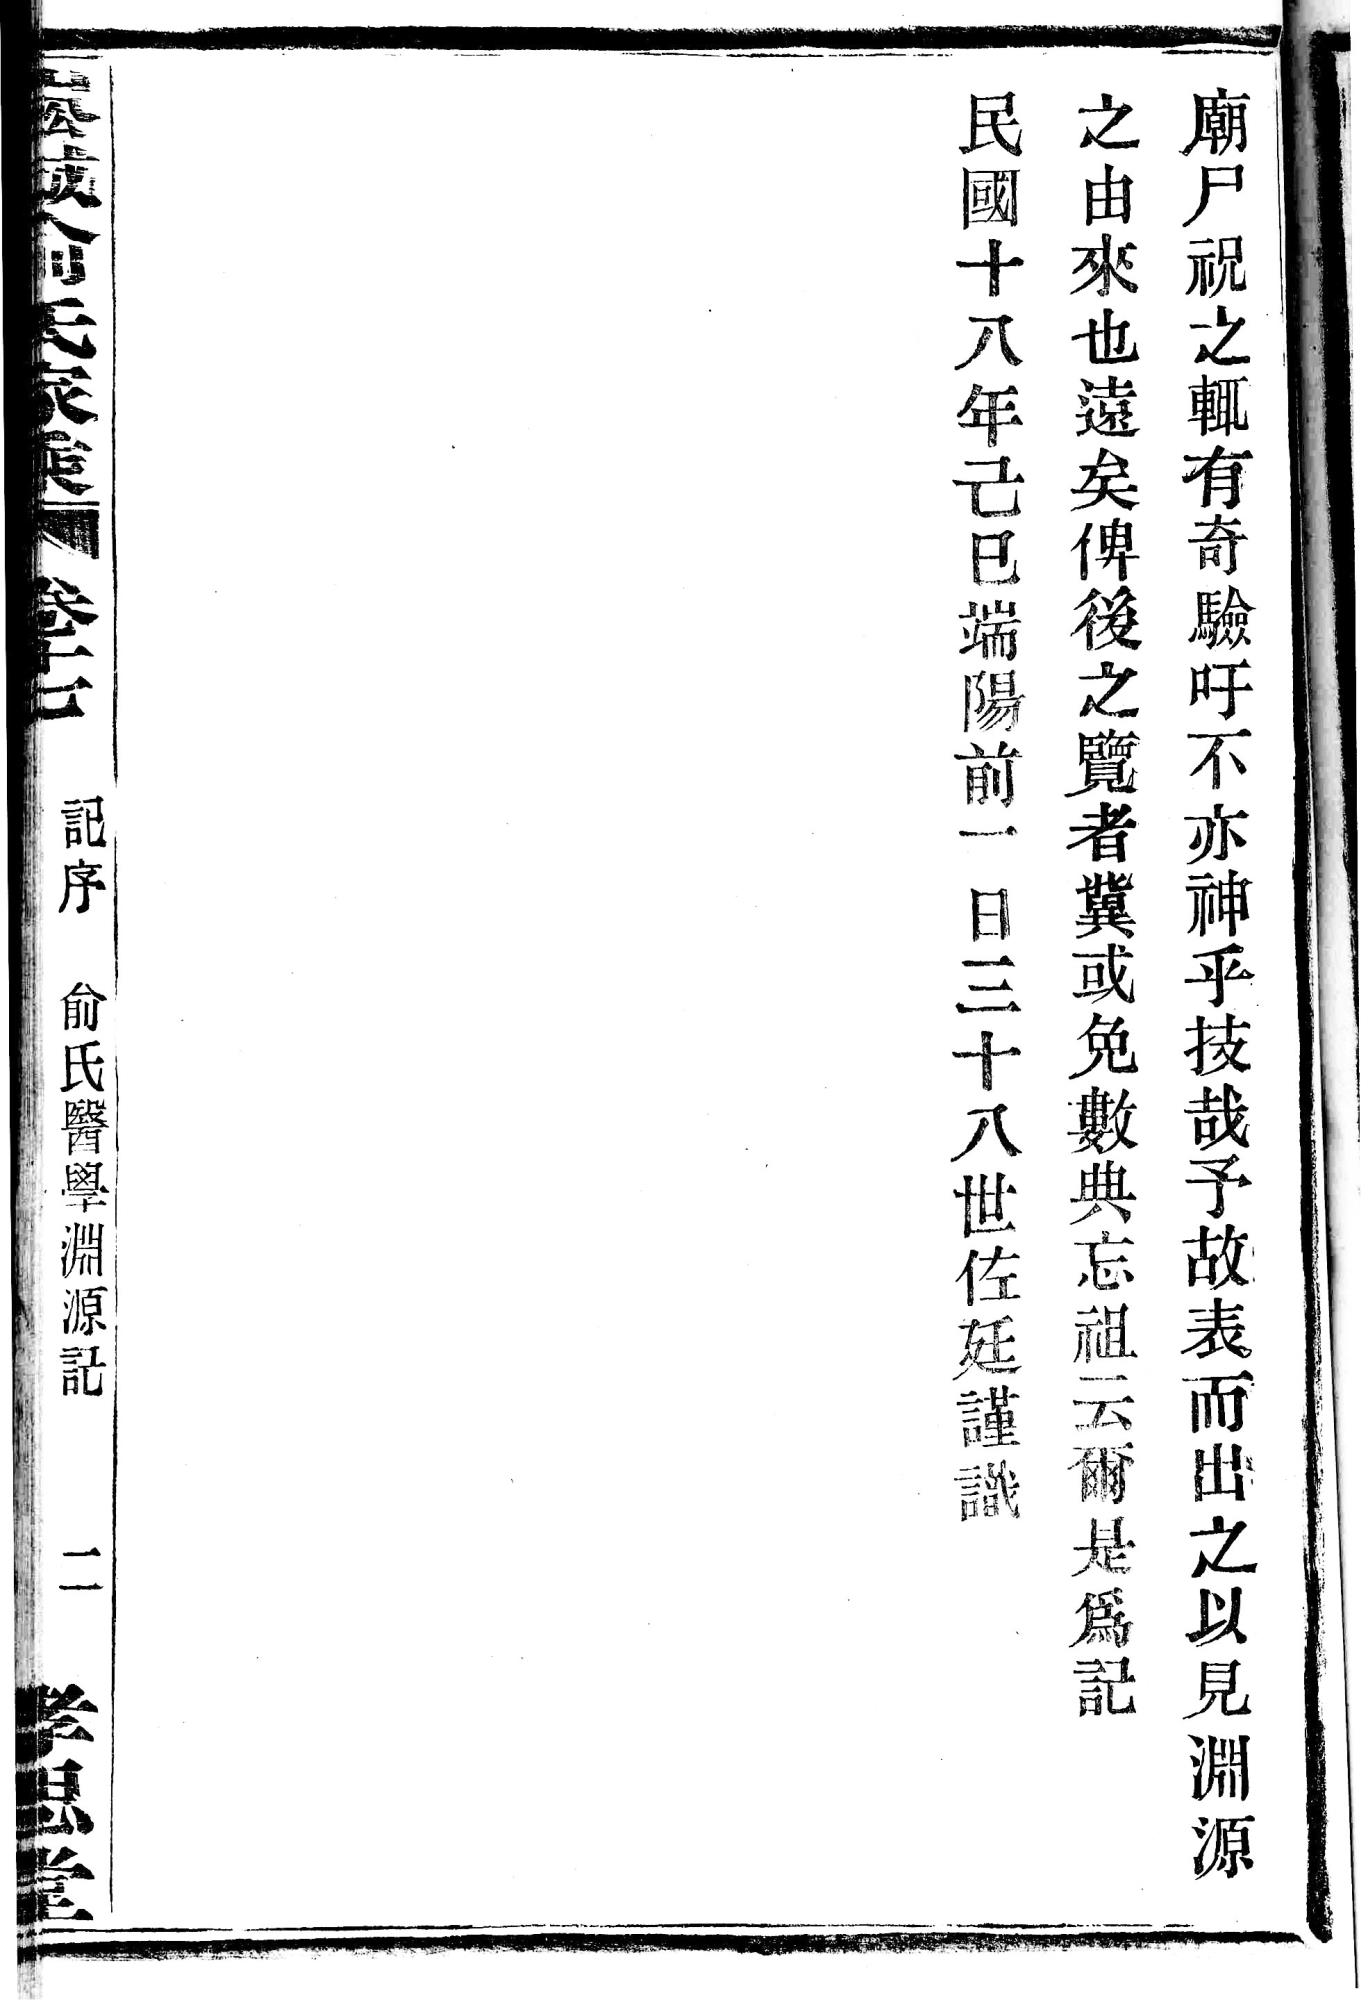 廟尸祝之輒有奇驗吁不亦神乎技哉予故表而出之以見淵源
之由來也遠矣俾後之覽者冀或免數典忘祖云爾是爲記
民國十八年己巳端陽前一日三十八世佐廷謹識
氏家乘 卷十七 記序 俞氏醫學淵源記 二 孝思堂